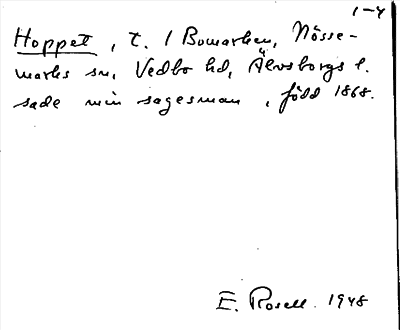 1-4
Hoppet, t. 1 Bowarken, Nösse-
marks sn, Vedbo hd, Älvsborgs l.
sade min sagesman, född 1868.
E. Rosell. 1948